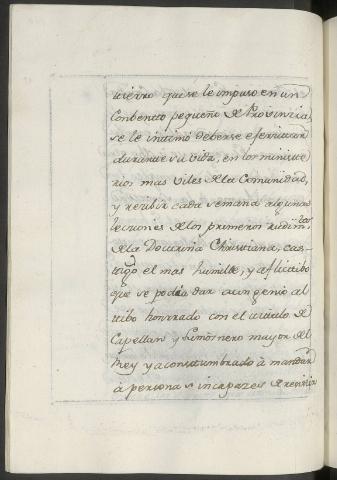 tierro que se le impuso en un
Conbento pequeño de Provinzia,
se le intimó deberse exercitar
durante su vida, en los ministe
rios mas viles de la Comunidad,
y recibir cada semana algunas
lecciones de los primeros rudim.tos
de la Doctrina Christiana, cas-
tigo el mas humilde, y aflictibo
que se podia dar a un genio al
tibo honrrado con el titulo de
Capellan y Limosnero mayor del
Rey y aconstumbrado à mandar
à personas incapazes de resistir